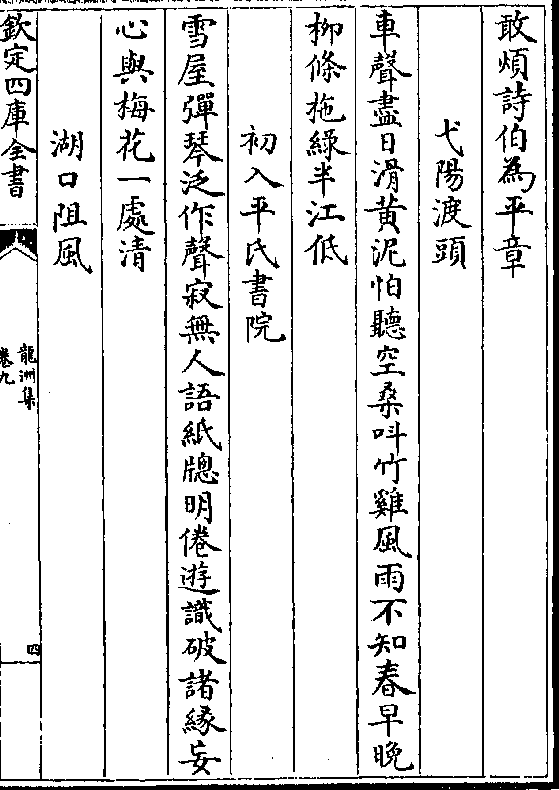 敢煩詩伯為平章
弋陽渡頭
車聲盡日滑黄泥怕聽空桑呌竹雞風雨不知春早晚
栁條拖緑半江低
初入平氏書院
雪屋彈琴泛作聲寂無人語紙牕明倦遊識破諸緣妄
心與梅花一處清
湖口阻風
欽定四庫全書
龍洲集
卷九
四